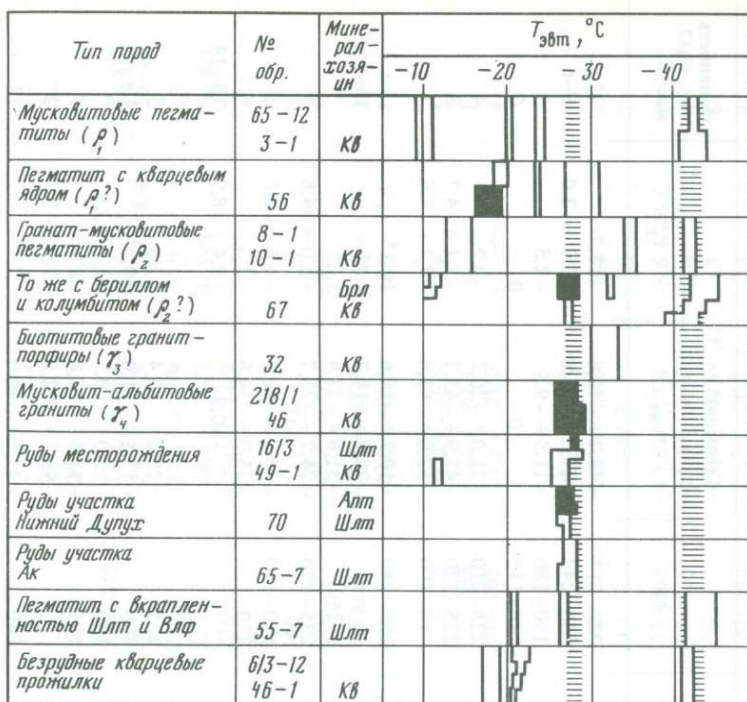 Тип пород
№
обр.
Мине-
рал-
хозя-
ин
Tэвт, °C
−10 −20 −30 −40
Мусковитовые пегма-
титы (ρ1)
65−12
3−1
Кв
Пегматит с кварцевым
ядром (ρ1?)
56
Кв
Гранат-мусковитовые
пегматиты (ρ2)
8−1
10−1
Кв
То же с бериллом
и колумбитом (ρ2?)
67
Брл
Кв
Биотитовые гранит-
порфиры (γ3)
32
Кв
Мусковит-альбитовые
граниты (γ4)
218/1
46
Кв
Руды месторождения
16/3
49−1
Шлт
Кв
Руды участка
Нижний Дупух
70
Апт
Шлт
Руды участка
Ак
65−7
Шлт
Пегматит с вкраплен-
ностью Шлт и Влф
55−7
Шлт
Безрудные кварцевые
прожилки
6/3−12
46−1
Кв